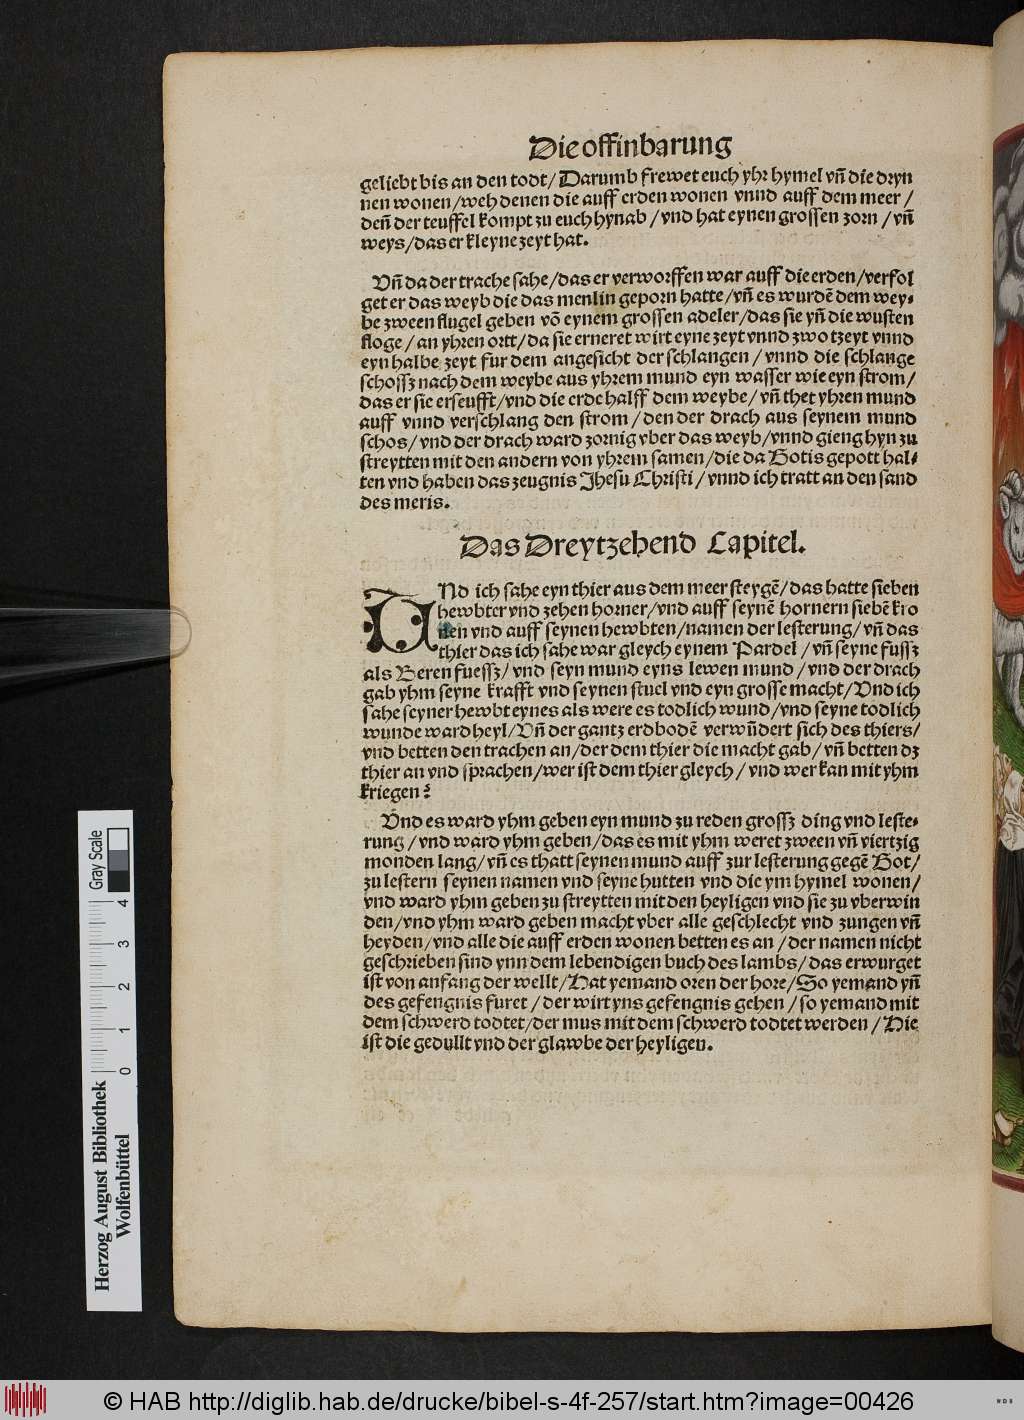 Die offinbarung
geliebt bis an den todt/ Darumb frewet euch yhr hymel vn̄ die dryn
nen wonen/weh denen die auff erden wonen vnnd auff dem meer/
den̄ der teuffel kompt zu euch hynab/vnd hat eynen grossen zorn/vn̄
weys/das er kleyne zeyt hat.
Vn̄ da der trache sahe/das er verworffen war auff die erden/verfol
get er das weyb die das menlin geporn hatte/vn̄ es wurdē dem wey-
be zween flugel geben vō eynem grossen adeler/das sie yn̄ die wusten
floge/an yhren ortt/da sie erneret wirt eyne zeyt vnnd zwo tzeyt vnnd
eyn halbe zeyt fur dem angesicht der schlangen/vnnd die schlange
schossz nach dem weybe aus yhrem mund eyn wasser wie eyn strom/
das er sie erseufft/vnd die erde halff dem weybe/vn̄ thet yhren mund
auff vnnd verschlang den strom/den der drach aus seynem mund
schos/vnd der drach ward zornig vber das weyb/vnnd gieng hyn zu
streytten mit den andern von yhrem samen/die da Gotis gepott hal-
ten vnd haben das zeugnis Jhesu Christi/vnnd ich tratt an den sand
des meris.
Das Dreytzehend Capitel.
VNd ich sahe eyn thier aus dem meer steygē/das hatte sieben
hewbter vnd zehen horner/vnd auff seynē hornern siebē kro
nen vnd auff seynen hewbten/namen der lesterung/vn̄ das
thier das ich sahe war gleych eynem Pardel/vn̄ seyne fussz
als Beren fuessz/vnd seyn mund eyns lewen mund/vnd der drach
gab yhm seyne krafft vnd seynen stuel vnd eyn grosse macht/Vnd ich
sahe seyner hewbt eynes als were es todlich wund/vnd seyne todlich
wunde ward heyl/Vn̄ der gantz erdbodē verwūdert sich des thiers/
vnd betten den trachen an/der dem thier die macht gab/vn̄ betten dz
thier an vnd sprachen/wer ist dem thier gleych/vnd wer kan mit yhm
kriegen?
Vnd es ward yhm geben eyn mund zu reden grossz ding vnd leste-
rung/vnd ward yhm geben/das es mit yhm weret zween vn̄ viertzig
monden lang/vn̄ es thatt seynen mund auff zur lesterung gegē Got/
zu lestern seynen namen vnd seyne hutten vnd die ym hymel wonen/
vnd ward yhm geben zu streytten mit den heyligen vnd sie zu vberwin
den/vnd yhm ward geben macht vber alle geschlecht vnd zungen vn̄
heyden/vnd alle die auff erden wonen betten es an/der namen nicht
geschrieben sind ynn dem lebendigen buch des lambs/das erwurget
ist von anfang der wellt/Hat yemand oren der hore/So yemand yn̄
des gefengnis furet/der wirt yns gefengnis gehen/so yemand mit
dem schwerd todtet/der mus mit dem schwerd todtet werden/Hie
ist die gedullt vnd der glawbe der heyligen.
Herzog August Bibliothek
Wolfenbüttel
0 1 2 3 4
Gray Scale
© HAB http://diglib.hab.de/drucke/bibel-s-4f-257/start.htm?image=00426